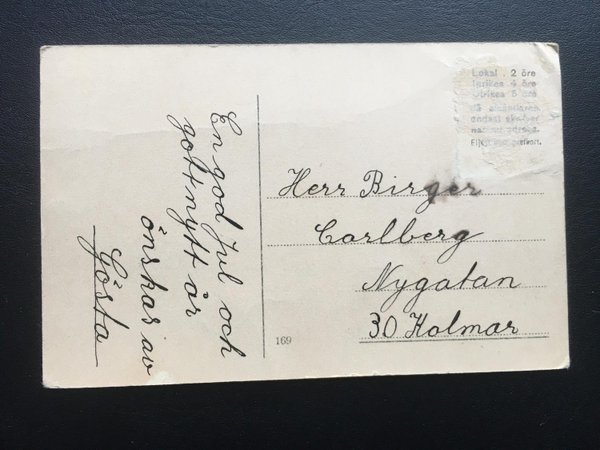 En god Jul och
gott nytt år
önskas av
Gösta
Lokal . 2 öre
Inrikes 4 öre
Utrikes 5 öre
endast
Herr Birger
Carlberg
Nygatan
30 Kalmar
169